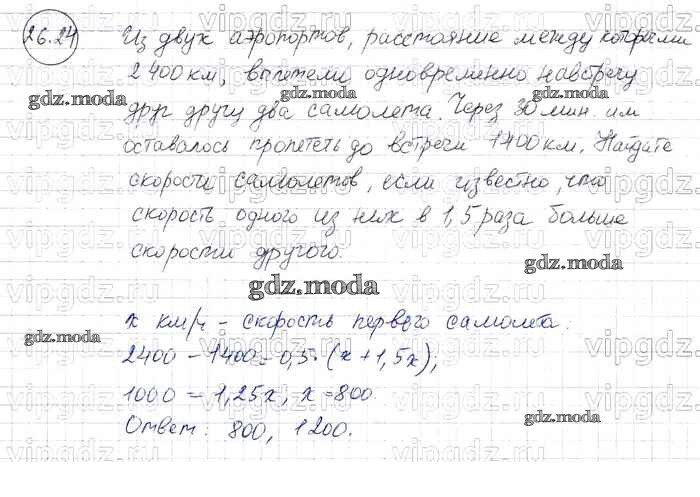 26.24
Из двух аэропортов, расстояние между которыми
2400 км, вылетели одновременно навстречу
друг другу два самолета. Через 30 мин. им
оставалось пролететь до встречи 1400 км. Найдите
скорости самолетов, если известно, что
скорость одного из них в 1,5 раза больше
скорости другого.
x км/ч – скорость первого самолета.
2400 – 1400 = 0,5·(x + 1,5x);
1000 = 1,25x, x = 800.
Ответ: 800, 1200.
gdz.moda
gdz.moda
gdz.moda
gdz.moda
gdz.moda
gdz.moda
gdz.moda
vipgdz.ru